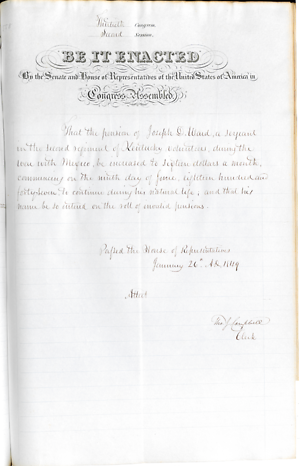 Thirtieth Congress
Second Session
BE IT ENACTED
By the Senate and House of Representatives of the United States of America in
Congress Assembled
That the pension of Joseph D. Ward, a sergeant
in the second regiment of Kentucky volunteers, during the
war with Mexico be increased to sixteen dollars a month,
commencing on the ninth day of June, eighteen hundred and
forty seven to continue during his natural life; and that his
name be so entered on the roll of invalid pensions.
Passed the House of Representatives
January 26th AD. 1849
Attest
Tho J. Campbell
Clerk